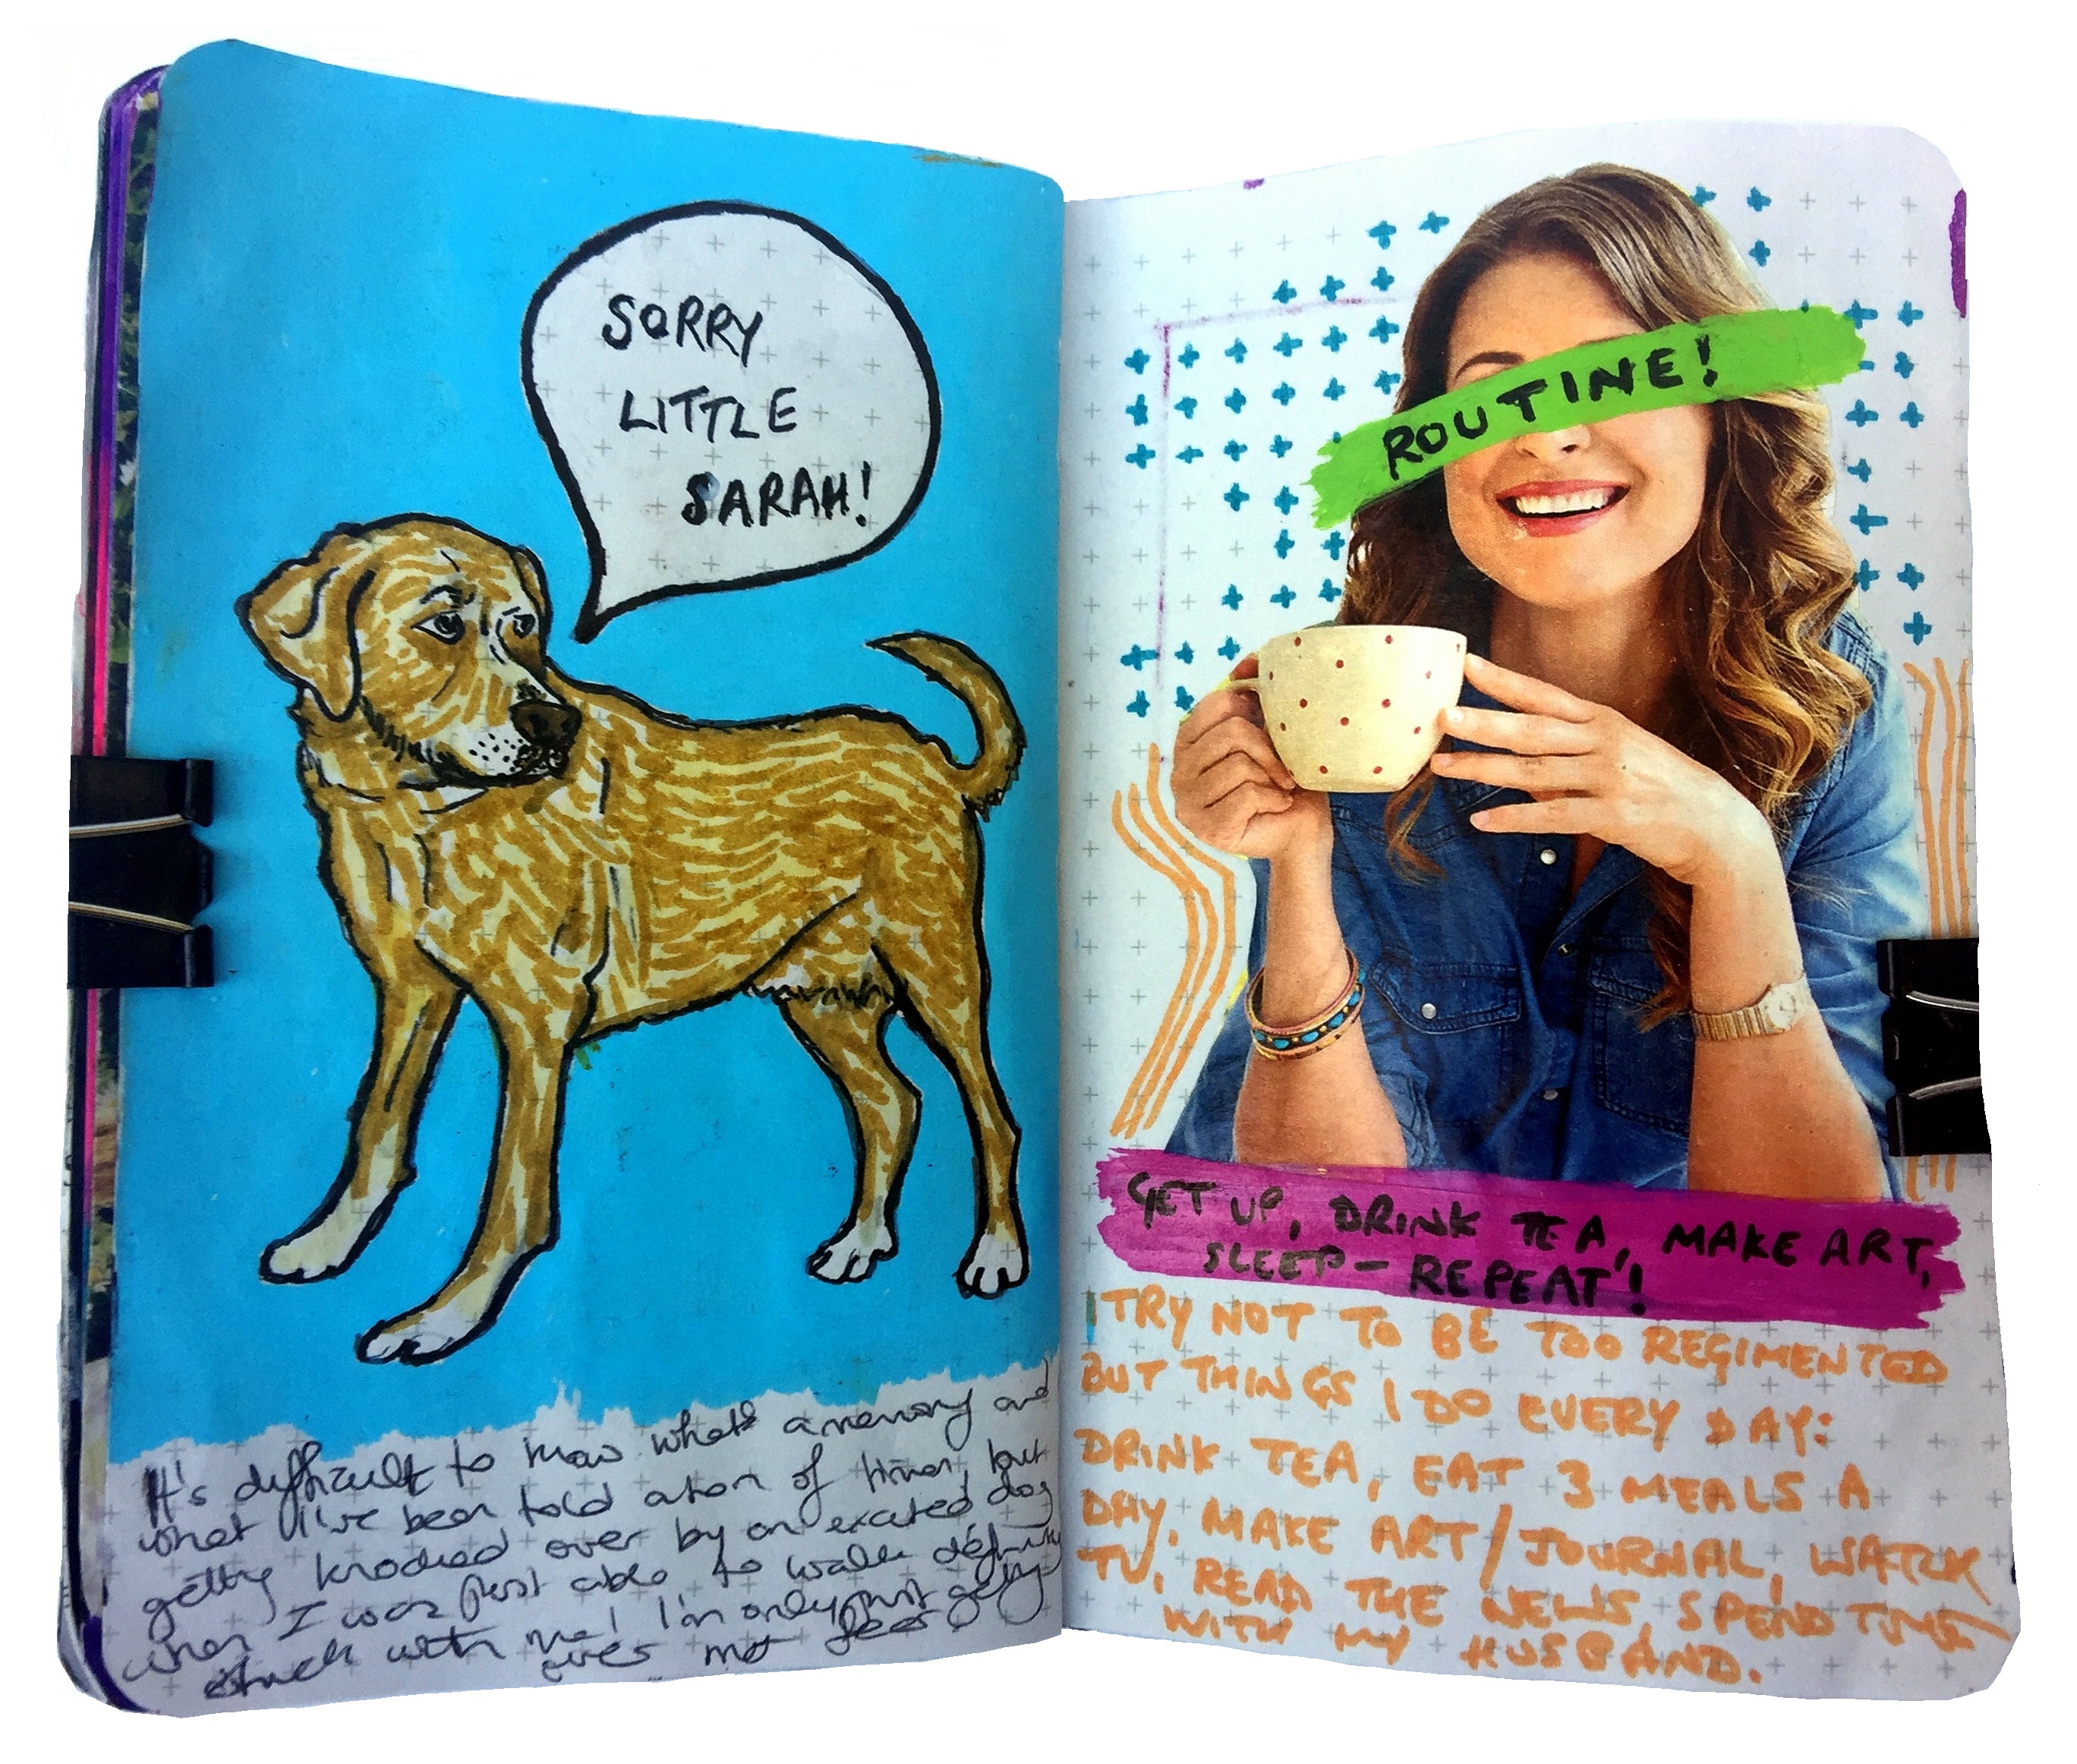 SORRY
LITTLE
SARAH!
It's difficult to know what's a memory and
what I've been told a ton of times, but
getting knocked over by an excited dog
when I was first able to walk definitely
stuck with me! I'm only just getting
over my fear.
ROUTINE!
GET UP, DRINK TEA, MAKE ART,
SLEEP - REPEAT!
I TRY NOT TO BE TOO REGIMENTED
BUT THINGS I DO EVERY DAY:
DRINK TEA, EAT 3 MEALS A
DAY, MAKE ART/JOURNAL, WATCH
TV, READ THE NEWS, SPEND TIME
WITH MY HUSBAND.